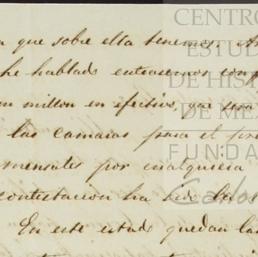 que sobre ella tenemos.
he hablado entrasemos
un millon en efectivo, que sera
las camaras para el
mensuales por cualquiera
contestacion ha sido la
En este estado quedan las
CENTRO
ESTUD
DE HIST
DE ME
FUNDA
Carlos